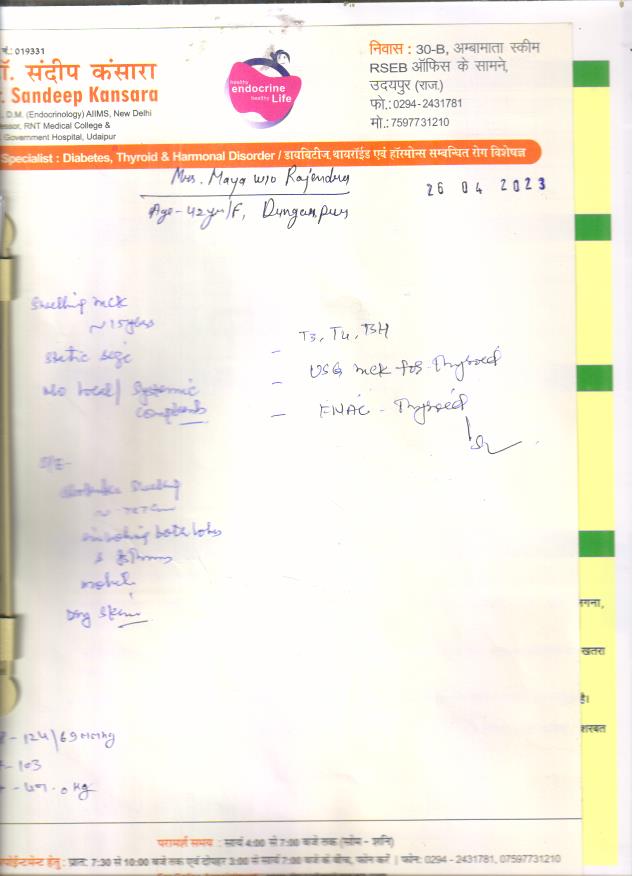 नं.: 019331
ॉ. संदीप कंसारा
r. Sandeep Kansara
, D.M. (Endocrinology) AIIMS, New Delhi
essor, RNT Medical College &
Government Hospital, Udaipur
healthy
endocrine
healthy Life
निवास : 30-B, अम्बामाता स्कीम
RSEB ऑफिस के सामने,
उदयपुर (राज.)
फो.:0294-2431781
मो.:7597731210
Specialist : Diabetes, Thyroid & Harmonal Disorder / डायबिटीज, थायरॉईड एवं हॉरमोन्स सम्बन्धित रोग विशेषज्ञ
Mrs. Maya w/o Rajendra
26 04 2023
Age - 42 yr/F, Dungarpur
Swelling neck
~ 15 years
Static size
No local / Systemic
Complaints
- T3, T4, TSH
- USG neck for Thyroid
- FNAC - Thyroid
S/E-
Swelling
involving both lobes
&
mobile
Dry Skin
- 124/69 mmHg
- 103
- 47.0 kg
गना,
खतरा
है।
शरबत
परामर्श समय : सायं 4:00 से 7:00 बजे तक (सोम - शनि)
पोईन्टमेन्ट हेतु : प्रातः 7:30 से 10:00 बजे तक एवं दोपहर 3:00 से सायं 7:00 बजे के बीच, फोन करें । फोन: 0294 - 2431781, 07597731210